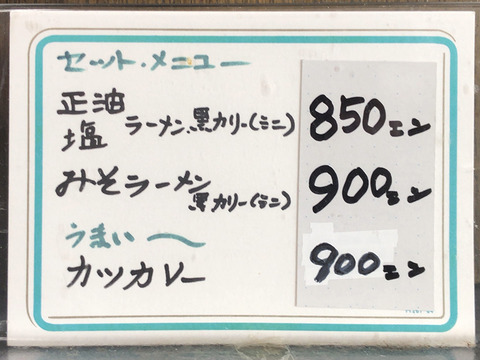 セット・メニュー
正油
塩 ラーメン、黒カリー(ミニ) 850エン
みそラーメン
黒カリー(ミニ) 900エン
うまい〜
カツカレー 900エン